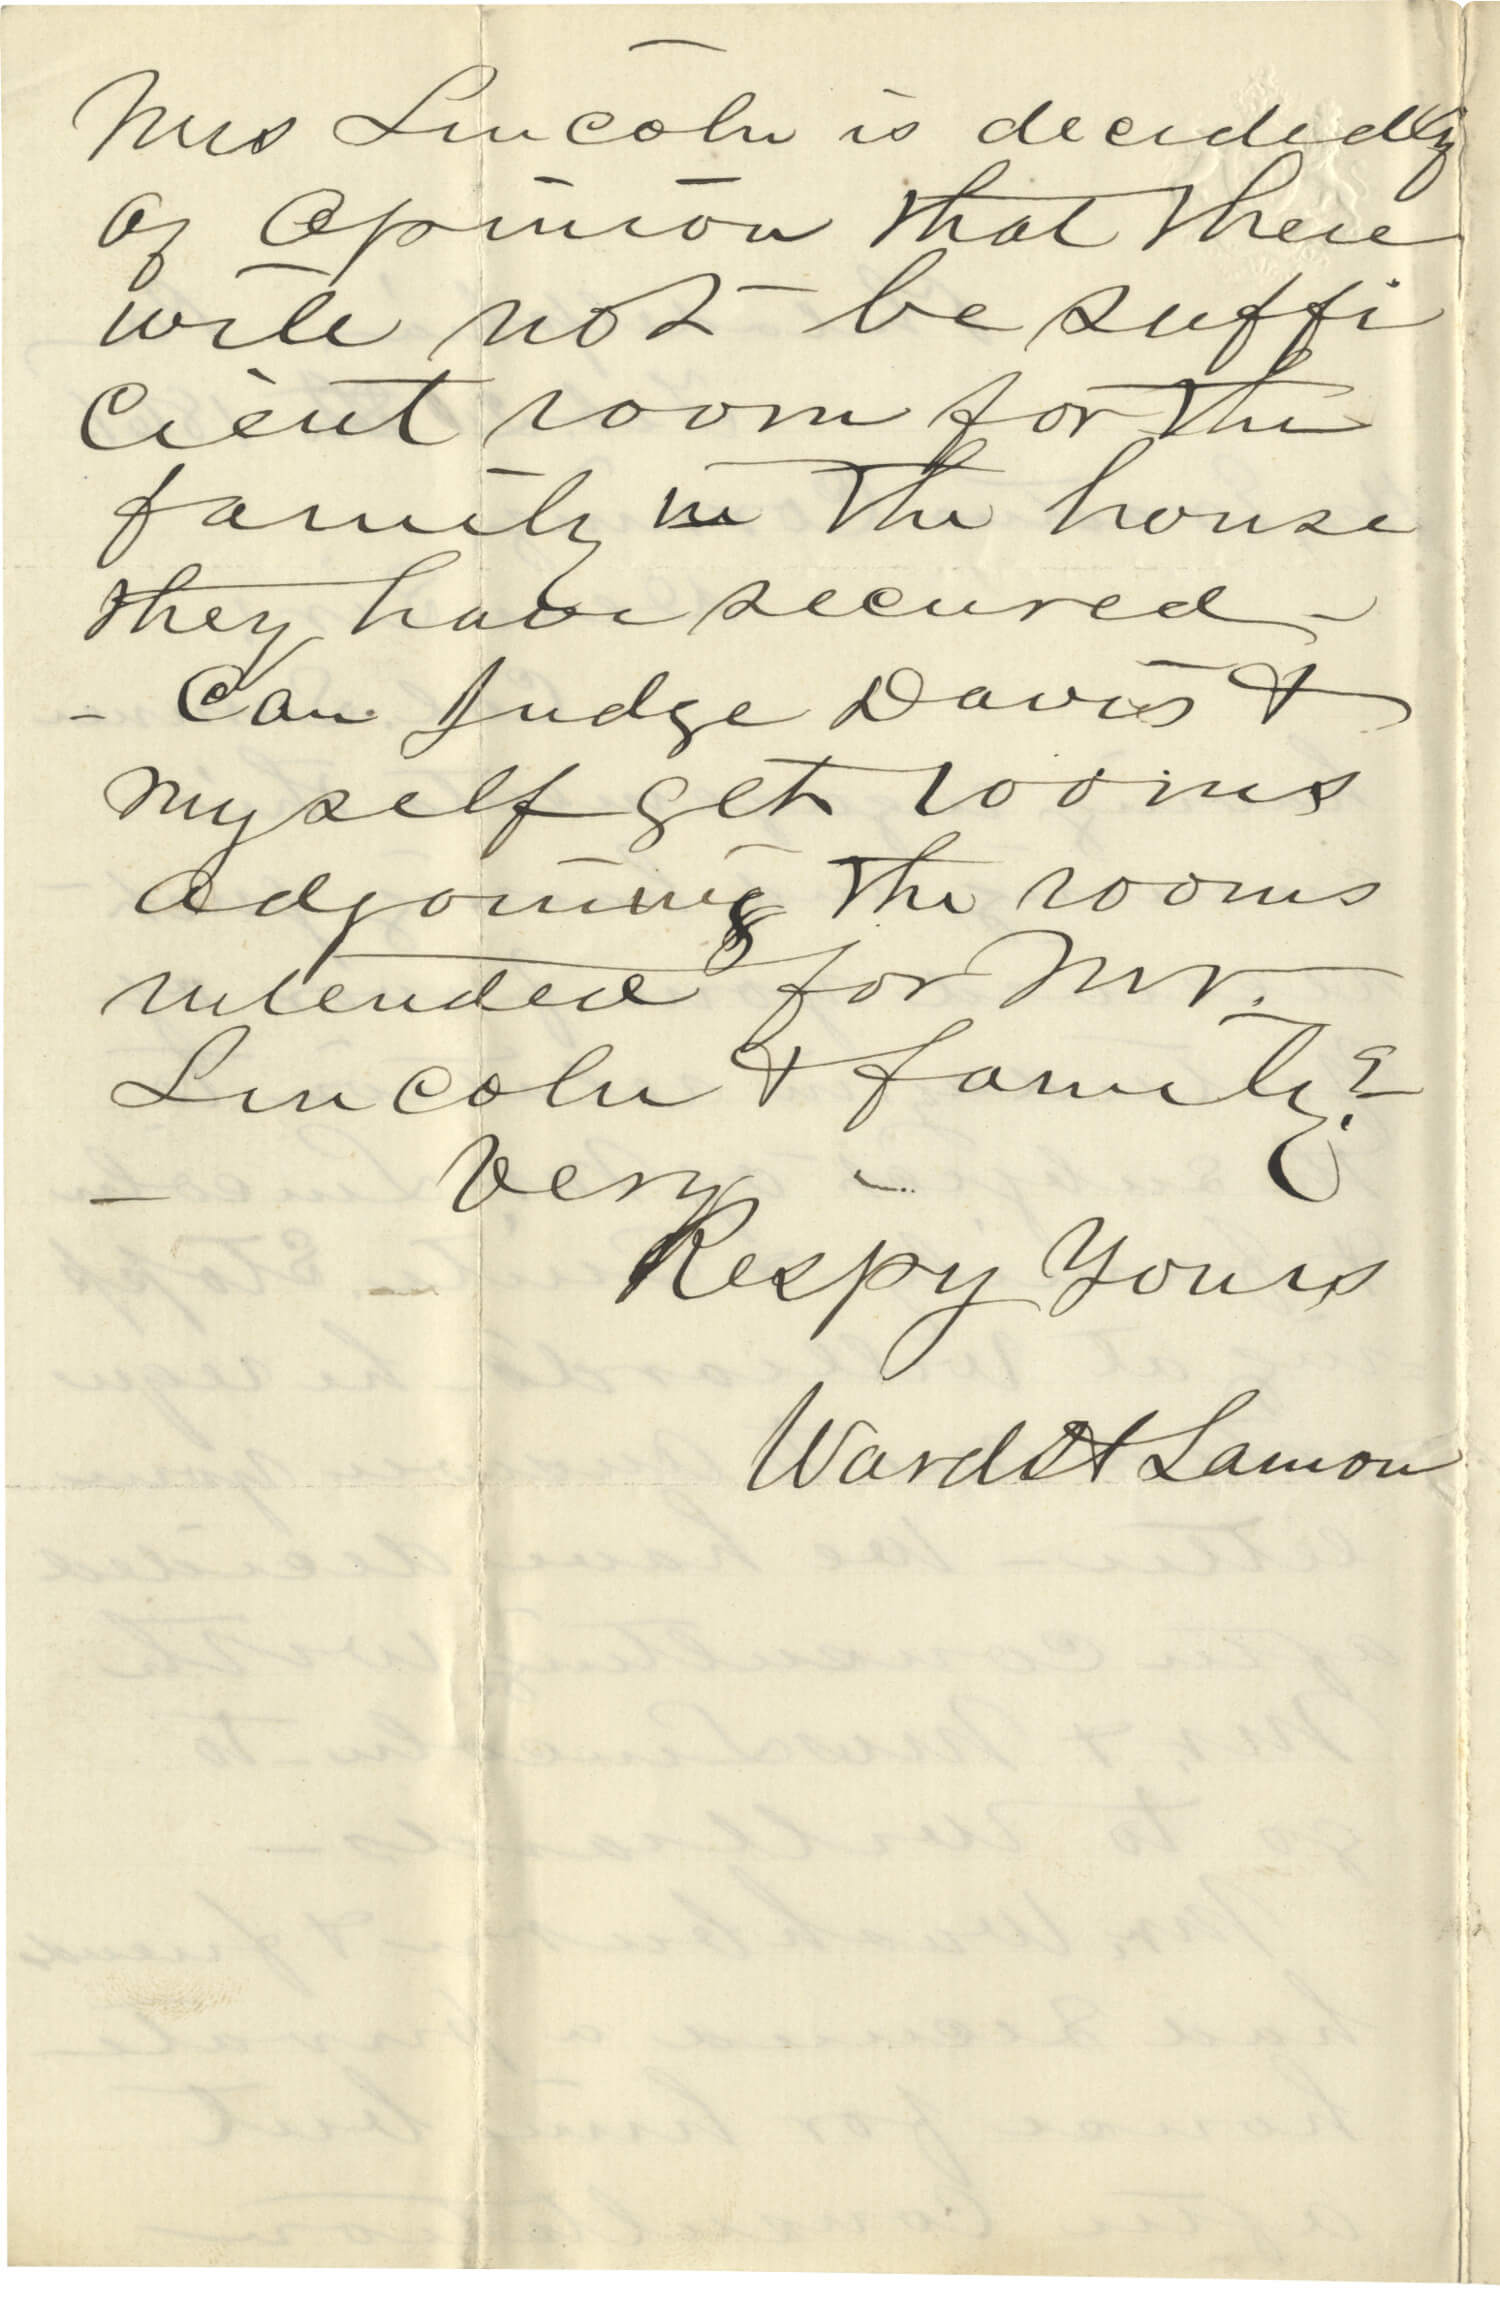 Mrs Lincoln is decidedly
of opinion that there
will not be suffi
cient room for the
family in the house
they have secured -
- Can Judge Davis &
myself get rooms
adjoining the rooms
intended for Mr.
Lincoln & family?
- Very -
Respy Yours
Ward H Lamon